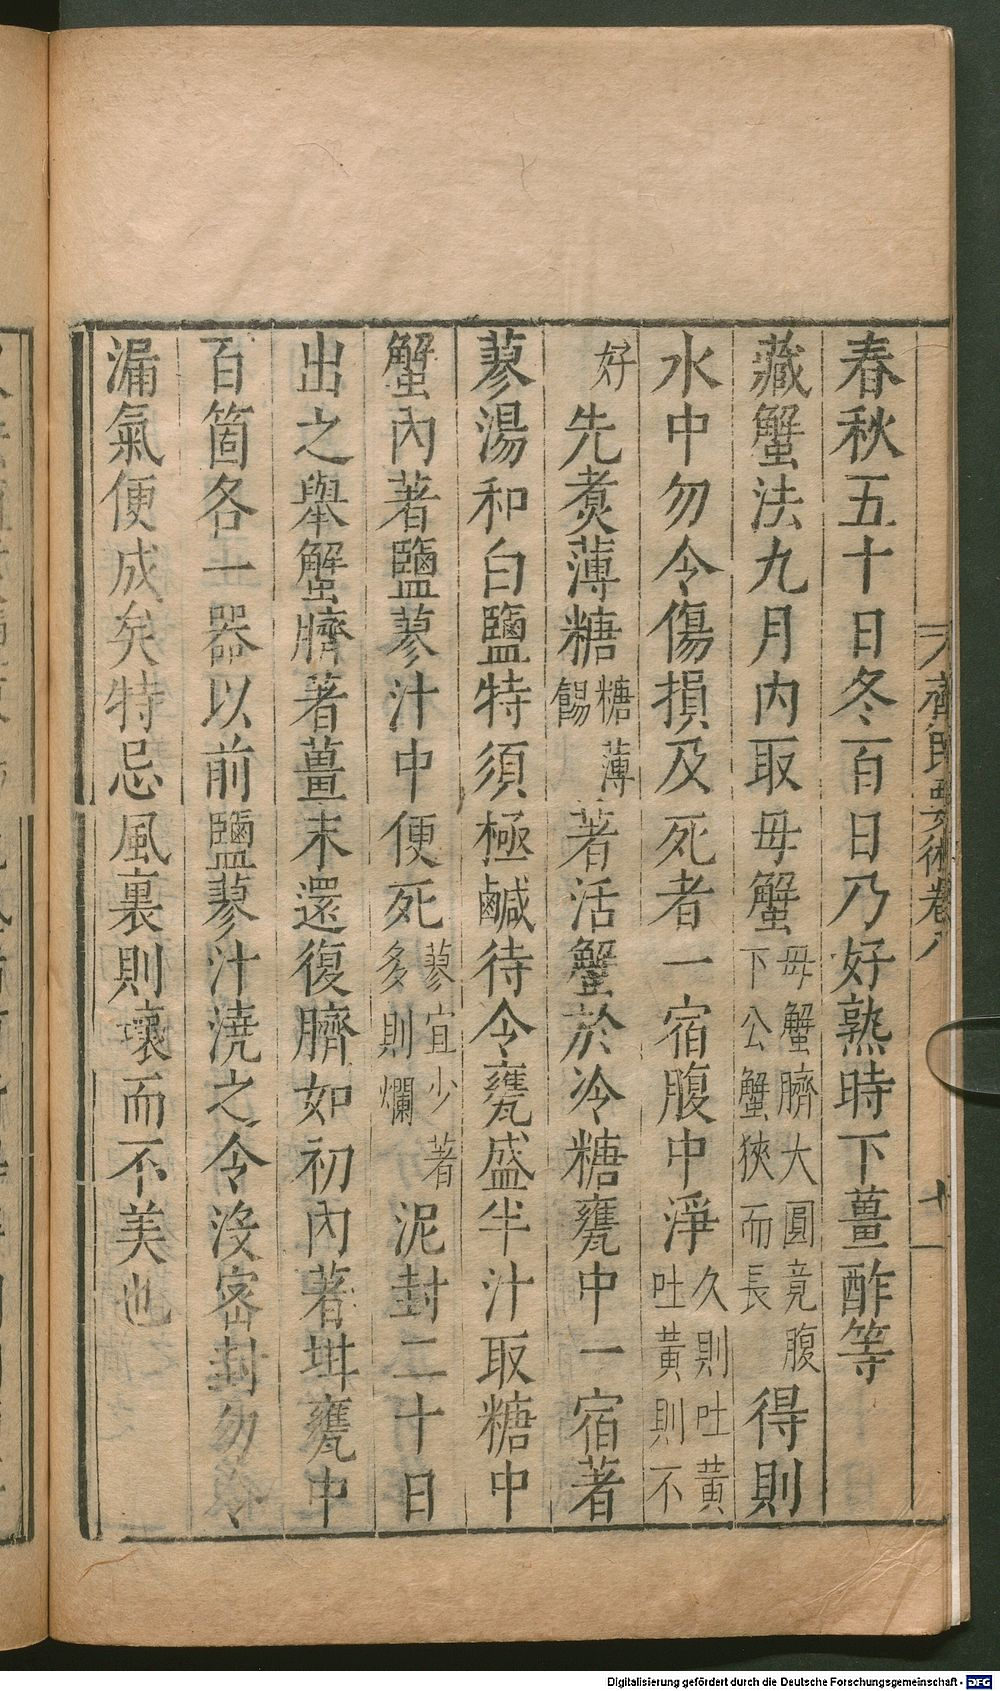 齊民要術卷八
十一
春秋五十日冬百日乃好熟時下薑酢等
藏蟹法九月內取母蟹母蟹臍大圓竟腹下公蟹狹而長得則
水中勿令傷損及死者一宿腹中淨久則吐黃吐黃則不
好先煮薄糖糖薄餳著活蟹於冷糖甕中一宿著
蓼湯和白鹽特須極鹹待令甕盛半汁取糖中
蟹內著鹽蓼汁中便死蓼宜少著多則爛泥封二十日
出之舉蟹臍著薑末還復臍如初內著坩甕中
百箇各一器以前鹽蓼汁澆之令沒密封勿令
漏氣便成矣特忌風裏則壞而不美也
Digitalisierung gefördert durch die Deutsche Forschungsgemeinschaft - DFG